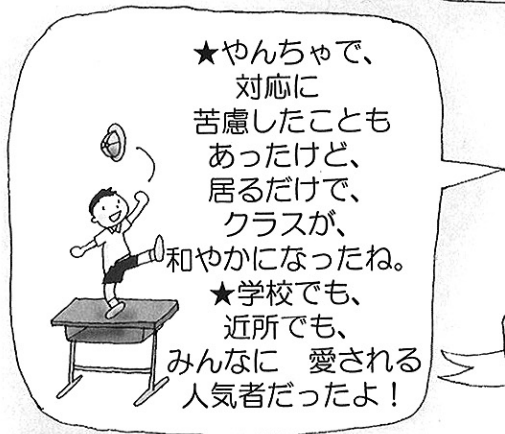 ★やんちゃで、
対応に
苦慮したことも
あったけど、
居るだけで、
クラスが、
和やかになったね。
★学校でも、
近所でも、
みんなに　愛される
人気者だったよ！